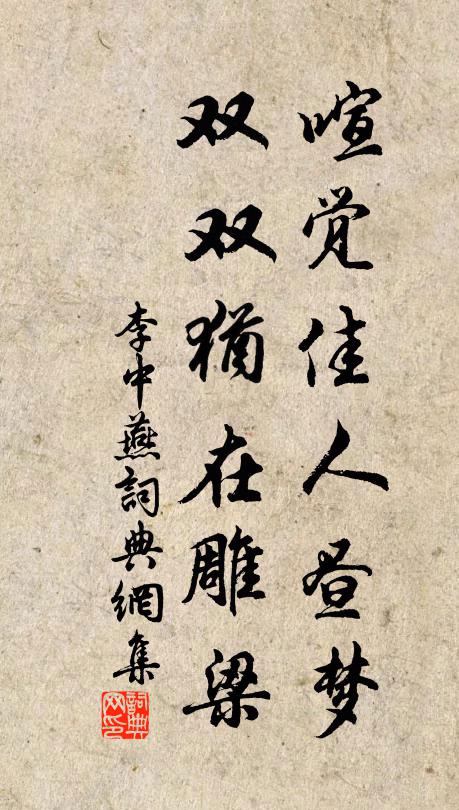 喧觉佳人昼梦
双双犹在雕梁
李中燕詞典網集
詞典网印